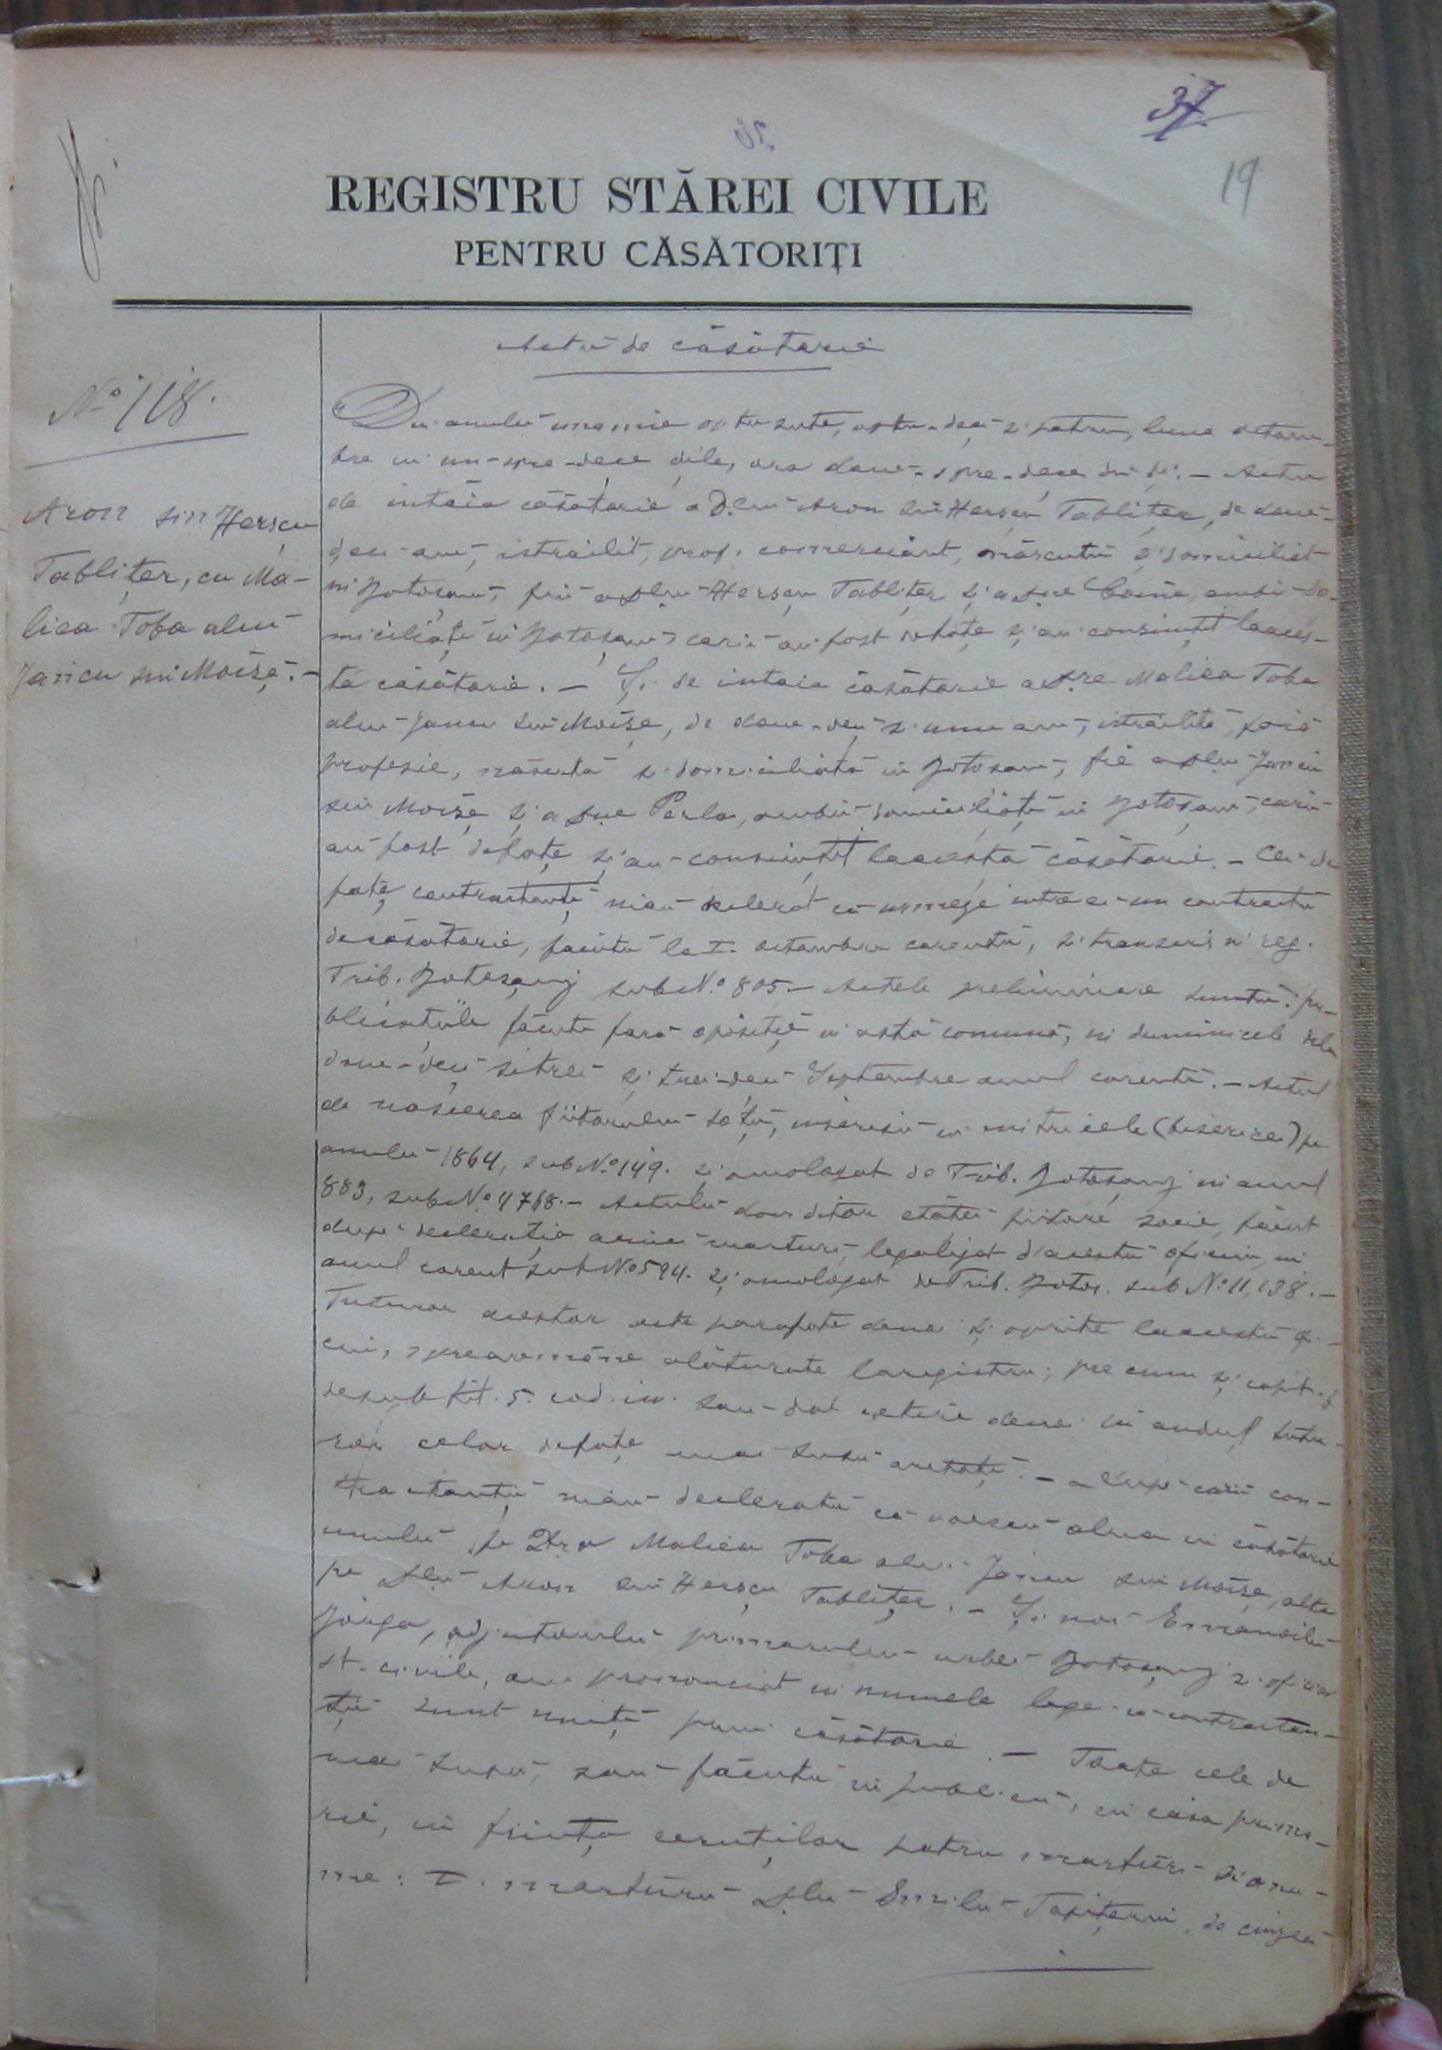 37
19
REGISTRU STĂREI CIVILE
PENTRU CĂSĂTORIȚI
Actu de căsătorie
No 118.
Aron sin Herșcu
Tablițer, cu Ma-
lica Toba alui
Iancu sin Moisă.-
Din anulu una mie optu sute, optu-deci și patru, luna octom-
bre in un-spre-dece dile, ora doue-spre-dece din di.- Actu
de intăia căsătorie a Dlui Aron sin Herșcu Tablițer, de doue-
deci ani, istrailit, prof. comerciant, născutu și domiciliat
in Botoșani, fiu a Dlui Herșcu Tablițer și a Dnei Coina, ambii do-
miciliați in Botoșani carii au fost de față și au consimțit la aces-
ta căsătorie.- Și de intaia căsătorie a Dnei Malica Toba
alui Iancu sin Moise, de doue-deci și unu ani, istrailită, fără
profesie, născută și domiciliată in Botosani, fie a Dlui Iancu
sin Moise și a Dnei Perla, ambii domiciliați in Botoșani, carii
au fost de față și au consimțit la acesta căsătorie.- Cei de
față contractanți niau declarat că urmeză intre ei un contractu
de căsătorie, facutu la I. octombre curentu, și transcris in reg.
Trib. Botoșanj sub No 805.- Actele preliminare suntu: pu-
blicațiile făcute fara oposiție in astă comună, in duminicele dela
doue-deci si trei și trei-deci Septembre anul corentu.- Actul
de nascerea fiitorului soțu, inscrisu in mitricele (bisericei) pe
anulu 1864, sub No 149. și omologat de Trib. Botoșanj in anul
883, sub No 4768.- Actulu doveditor etăței fiitore socie, făcut
dupe declerația a cinci marturi, legalizat d'acestu oficiu, in
anul corent sub No 594. și omologat de Trib. Botoș. sub No 11,138.-
Tuturor acestor acte parafate de noi și oprite la acestu ofi-
ciu, spre a remăne alăturate la registru; pre cum și capit.
de sub tit. 5. cod. civ. sau dat cetire de noi in audul tutu-
ror celor de față mai susu aretați.- Dupe carii con-
tractanții niau decleratu că voescu alua in căsătorie
unulu pe Dra Malica Toba alui Iancu sin Moise, alta
pe Dlu Aron sin Herșcu Tablițer.- Și noi Emanoilu
Iorga, adjutorulu primarului urbei Botoșanj și oficiar
st. civile, am pronunciat in numele legei că contractan-
ții sunt uniți prin căsătorie.- Toate cele de
mai susu, sau făcutu in publicu, in casa prima-
rie, in ființa ceruților patru marturi și anu-
me: I. marturu Dlu Smilu Tapițeriu, de cinzeci